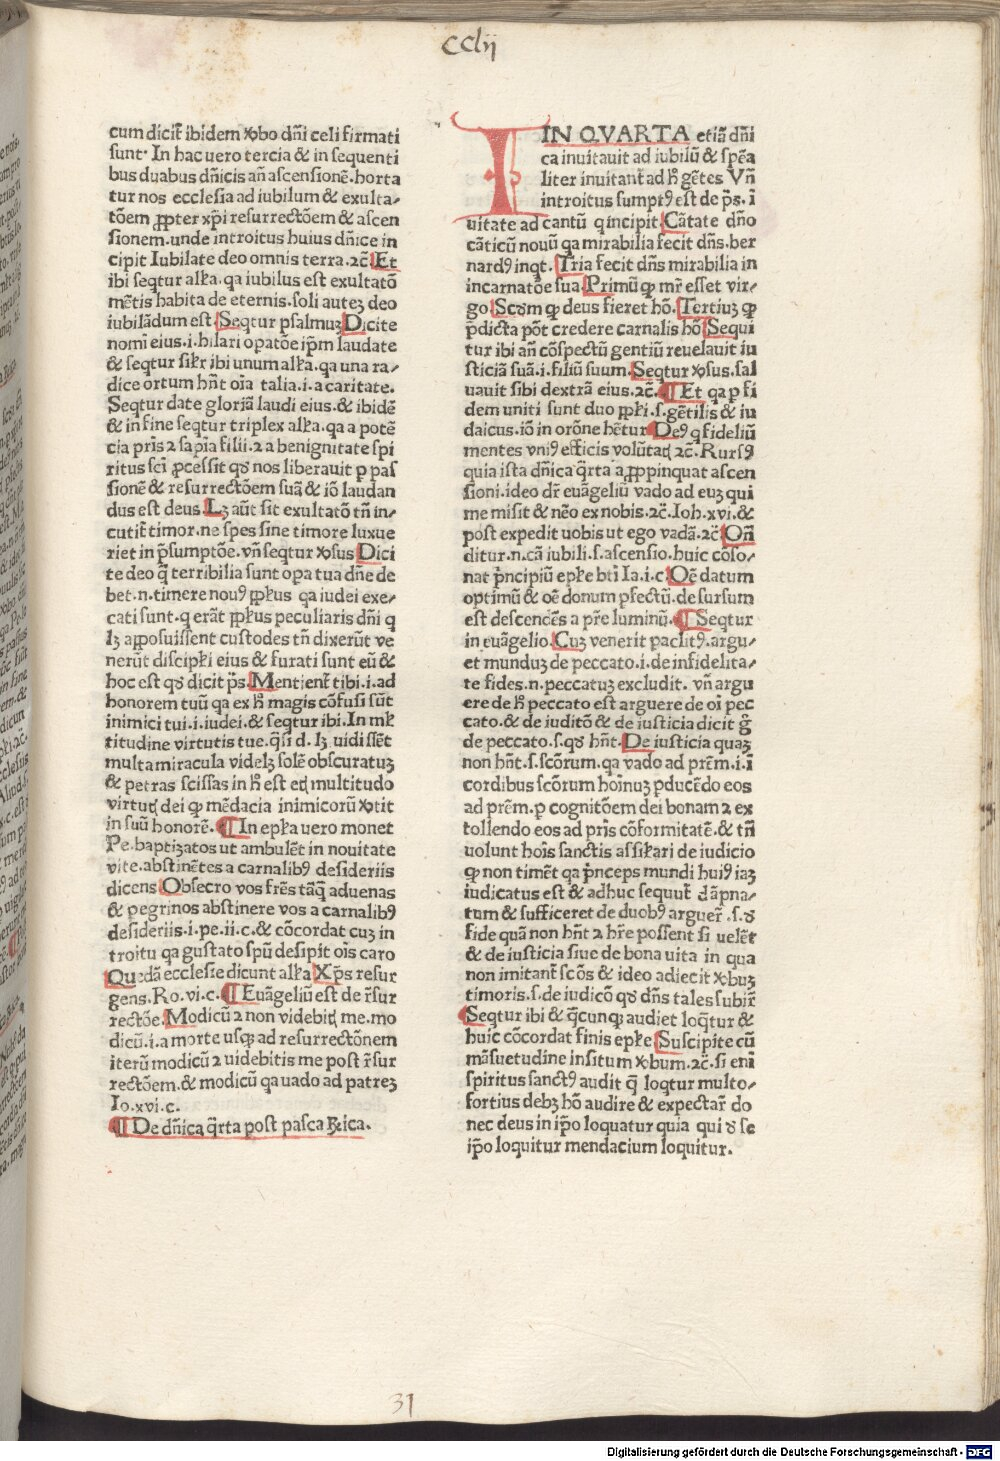 CClij
cum dicit̃ ibidem ꝟbo dñi celi firmati
sunt· In hac uero tercia & in sequenti
bus duabus dñicis añ ascensionẽ.horta
tur nos ecclesia ad iubilum & exulta-
tõem ꝓpter xp̃i resurrectõem & ascen
sionem.unde introitus huius dñice in
cipit Iubilate deo omnis terra.⁊c̃.Et
ibi seqtur alƚa.qa iubilus est exultatõ
mẽtis habita de eternis.soli autez deo
iubilãdum est.Seqtur psalmuʒ Dicite
nomĩ eius.i.hilari opatõe ip̃m laudate
& seqtur siƚr ibi unum alƚa.qa una ra/
dice ortum hñt oĩa talia.i.a caritate.
Seqtur date gloriã laudi eius.& ibidẽ
& in fine seqtur triplex alƚa.qa a potẽ
cia pr̃is ⁊ sap̃ia filii.⁊ a benignitate spi
ritus sc̃i ꝓcessit qđ nos liberauit ꝑ pas
sionẽ & resurrectõem suã & iõ laudan
dus est deus.Lʒ aũt sit exultatõ tñ in/
cutit̃ timor.ne spes sine timore luxue
riet in p̃sumptõe.vñ seqtur ꝟsus Dici
te deo q̃ terribilia sunt opa tua dñe de
bet.n.timere nouꝰ ꝓƚus qa iudei exe/
cati sunt.q erãt ꝓƚus peculiaris dñi q
lʒ apposuissent custodes tñ dixerũt ve
nerũt discipƚi eius & furati sunt eũ &
hoc est qđ dicit p̃s.Mentient̃ tibi.i.ad
honorem tuũ qa ex h̃ magis cõfusi sũt
inimici tui.i.iudei.& seqtur ibi.In mƚ
titudine virtutis tue.q̃si d. lʒ uidissẽt
multa miracula videlʒ solẽ obscuratuʒ
& petras scissas in h̃ est eꝗ multitudo
virtuꝗ dei ꝙ mẽdacia inimicorũ ꝟtit
in suũ honorẽ. ¶ In epƚa uero monet
Pe.baptiʒatos ut ambulẽt in nouitate
vite.abstinẽtes a carnalibꝰ desideriis
dicens Obsecro vos fr̃es tãq̃ aduenas
& pegrinos abstinere vos a carnalibꝰ
desideriis.i.pe.ii.c.& cõcordat cuʒ in
troitu qa gustato spũ desipit oĩs caro
Quedã ecclesie dicunt alƚa Xp̃s resur
gens.Ro.vi.c. ¶ Euãgeliũ est de r̃sur
rectõe.Modicũ ⁊ non videbiꝗ me.mo
dicũ.i.a morte usqꝫ ad resurrectõnem
iterũ modicũ ⁊ uidebitis me post r̃sur
rectõem.& modicũ qa uado ad patreʒ
Io.xvi.c.
¶ De dñica q̃rta post pasca Rica.
IN QVARTA etiã dñi
ca inuitauit ad iubilũ & spẽa
liter inuitant̃ ad h̃ gẽtes Vñ
introitus sumptꝰ est de p̃s. ĩ
uitate ad cantũ q incipit Cãtate dño
cãticũ nouũ qa mirabilia fecit dñs.ber
nardꝰ inqt. Tria fecit dñs mirabilia in
incarnatõe sua.Primũ ꝙ mr̃ esset vir/
go.Scđm ꝙ deus fieret hõ.Tertiuʒ ꝙ
p̃dicta põt credere carnalis hõ Sequi
tur ibi añ cõspectũ gentiũ reuelauit iu
sticiã suã.i.filiũ suum.Seqtur ꝟsus.sal
uauit sibi dextrã eius.⁊c̃. ¶ Et qa ꝑ fi
dem uniti sunt duo ꝓƚi.s.gẽtilis & iu
daicus.iõ in orõne hẽtur Deꝰ q fideliũ
mentes vniꝰ efficis volũtaꝗ ⁊c̃.Rursꝰ
quia ista dñica q̃rta appropinquat ascen
sioni.ideo dr̃ euãgeliũ vado ad euʒ qui
me misit & nẽo ex nobis.⁊c̃.Ioh.xvi.&
post expedit uobis ut ego vadã.⁊c̃ Oñ
ditur.n.cã iubili.s.ascensio.huic cõso/
nat p̃ncipiũ epƚe bt̃i Ia.i.c.Oẽ datum
optimũ & oẽ donum pfectũ.desursum
est descendẽs a pr̃e luminũ. ¶ Seqtur
in euãgelio.Cuʒ venerit paclitꝰ.argu/
et munduʒ de peccato.i.de infidelita/
te fides.n.peccatuʒ excludit. vñ argu
ere de h̃ peccato est arguere de oĩ pec
cato.& de iuditõ & de iusticia dicit g̃
de peccato.s.qđ hñt.De iusticia quaʒ
non hñt.s.scõrum.qa vado ad pr̃em.i.ĩ
cordibus scõrum hoĩnuʒ pducẽdo eos
ad pr̃em.ꝑ cognitõem dei bonam ⁊ ex
tollendo eos ad pr̃is cõformitatẽ.& tñ
uolunt hoĩs sanctis assiƚari de iudicio
ꝙ non timẽt qa p̃nceps mundi huiꝰ iaʒ
iudicatus est & adhuc sequut̃ dãpna/
tum & sufficeret de duobꝰ arguer̃.s.đ
fide quã non hñt ⁊ hr̃e possent si uelẽt
& de iusticia siue de bona uita in qua
non imitant̃ scõs & ideo adiecit ꝟbuʒ
timoris.s.de iudicõ qđ dñs tales subir̃
Seqtur ibi & q̃cunqꝫ audiet loq̃tur &
huic cõcordat finis epƚe Suscipite cũ
mãsuetudine insitum ꝟbum.⁊c̃.si enĩ
spiritus sanctꝰ audit q̃ loqtur multo/
fortius debʒ hõ audire & expectar̃ do
nec deus in ip̃o loquatur quia qui đ se
ip̃o loquitur mendacium loquitur.
31
Digitalisierung gefördert durch die Deutsche Forschungsgemeinschaft - DFG